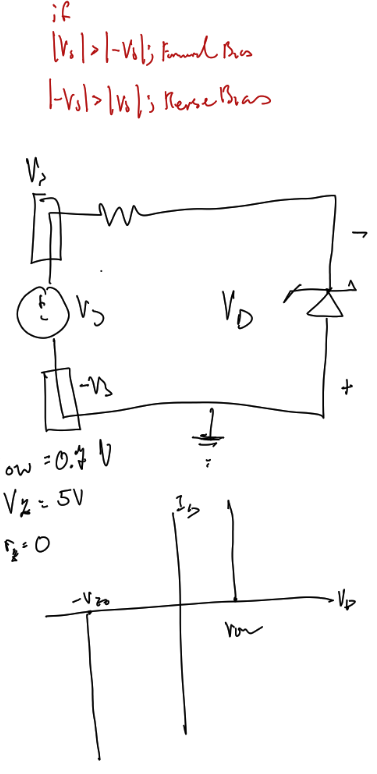 if
|Vs| > |-Vs|; Forward Bias
|-Vs| > |Vs|; Reverse Bias
Vs
+
-
Vs
VD
-
-Vs
+
on = 0.7 V
VZ = 5V
rz = 0
ID
-Vzo
VD
Von